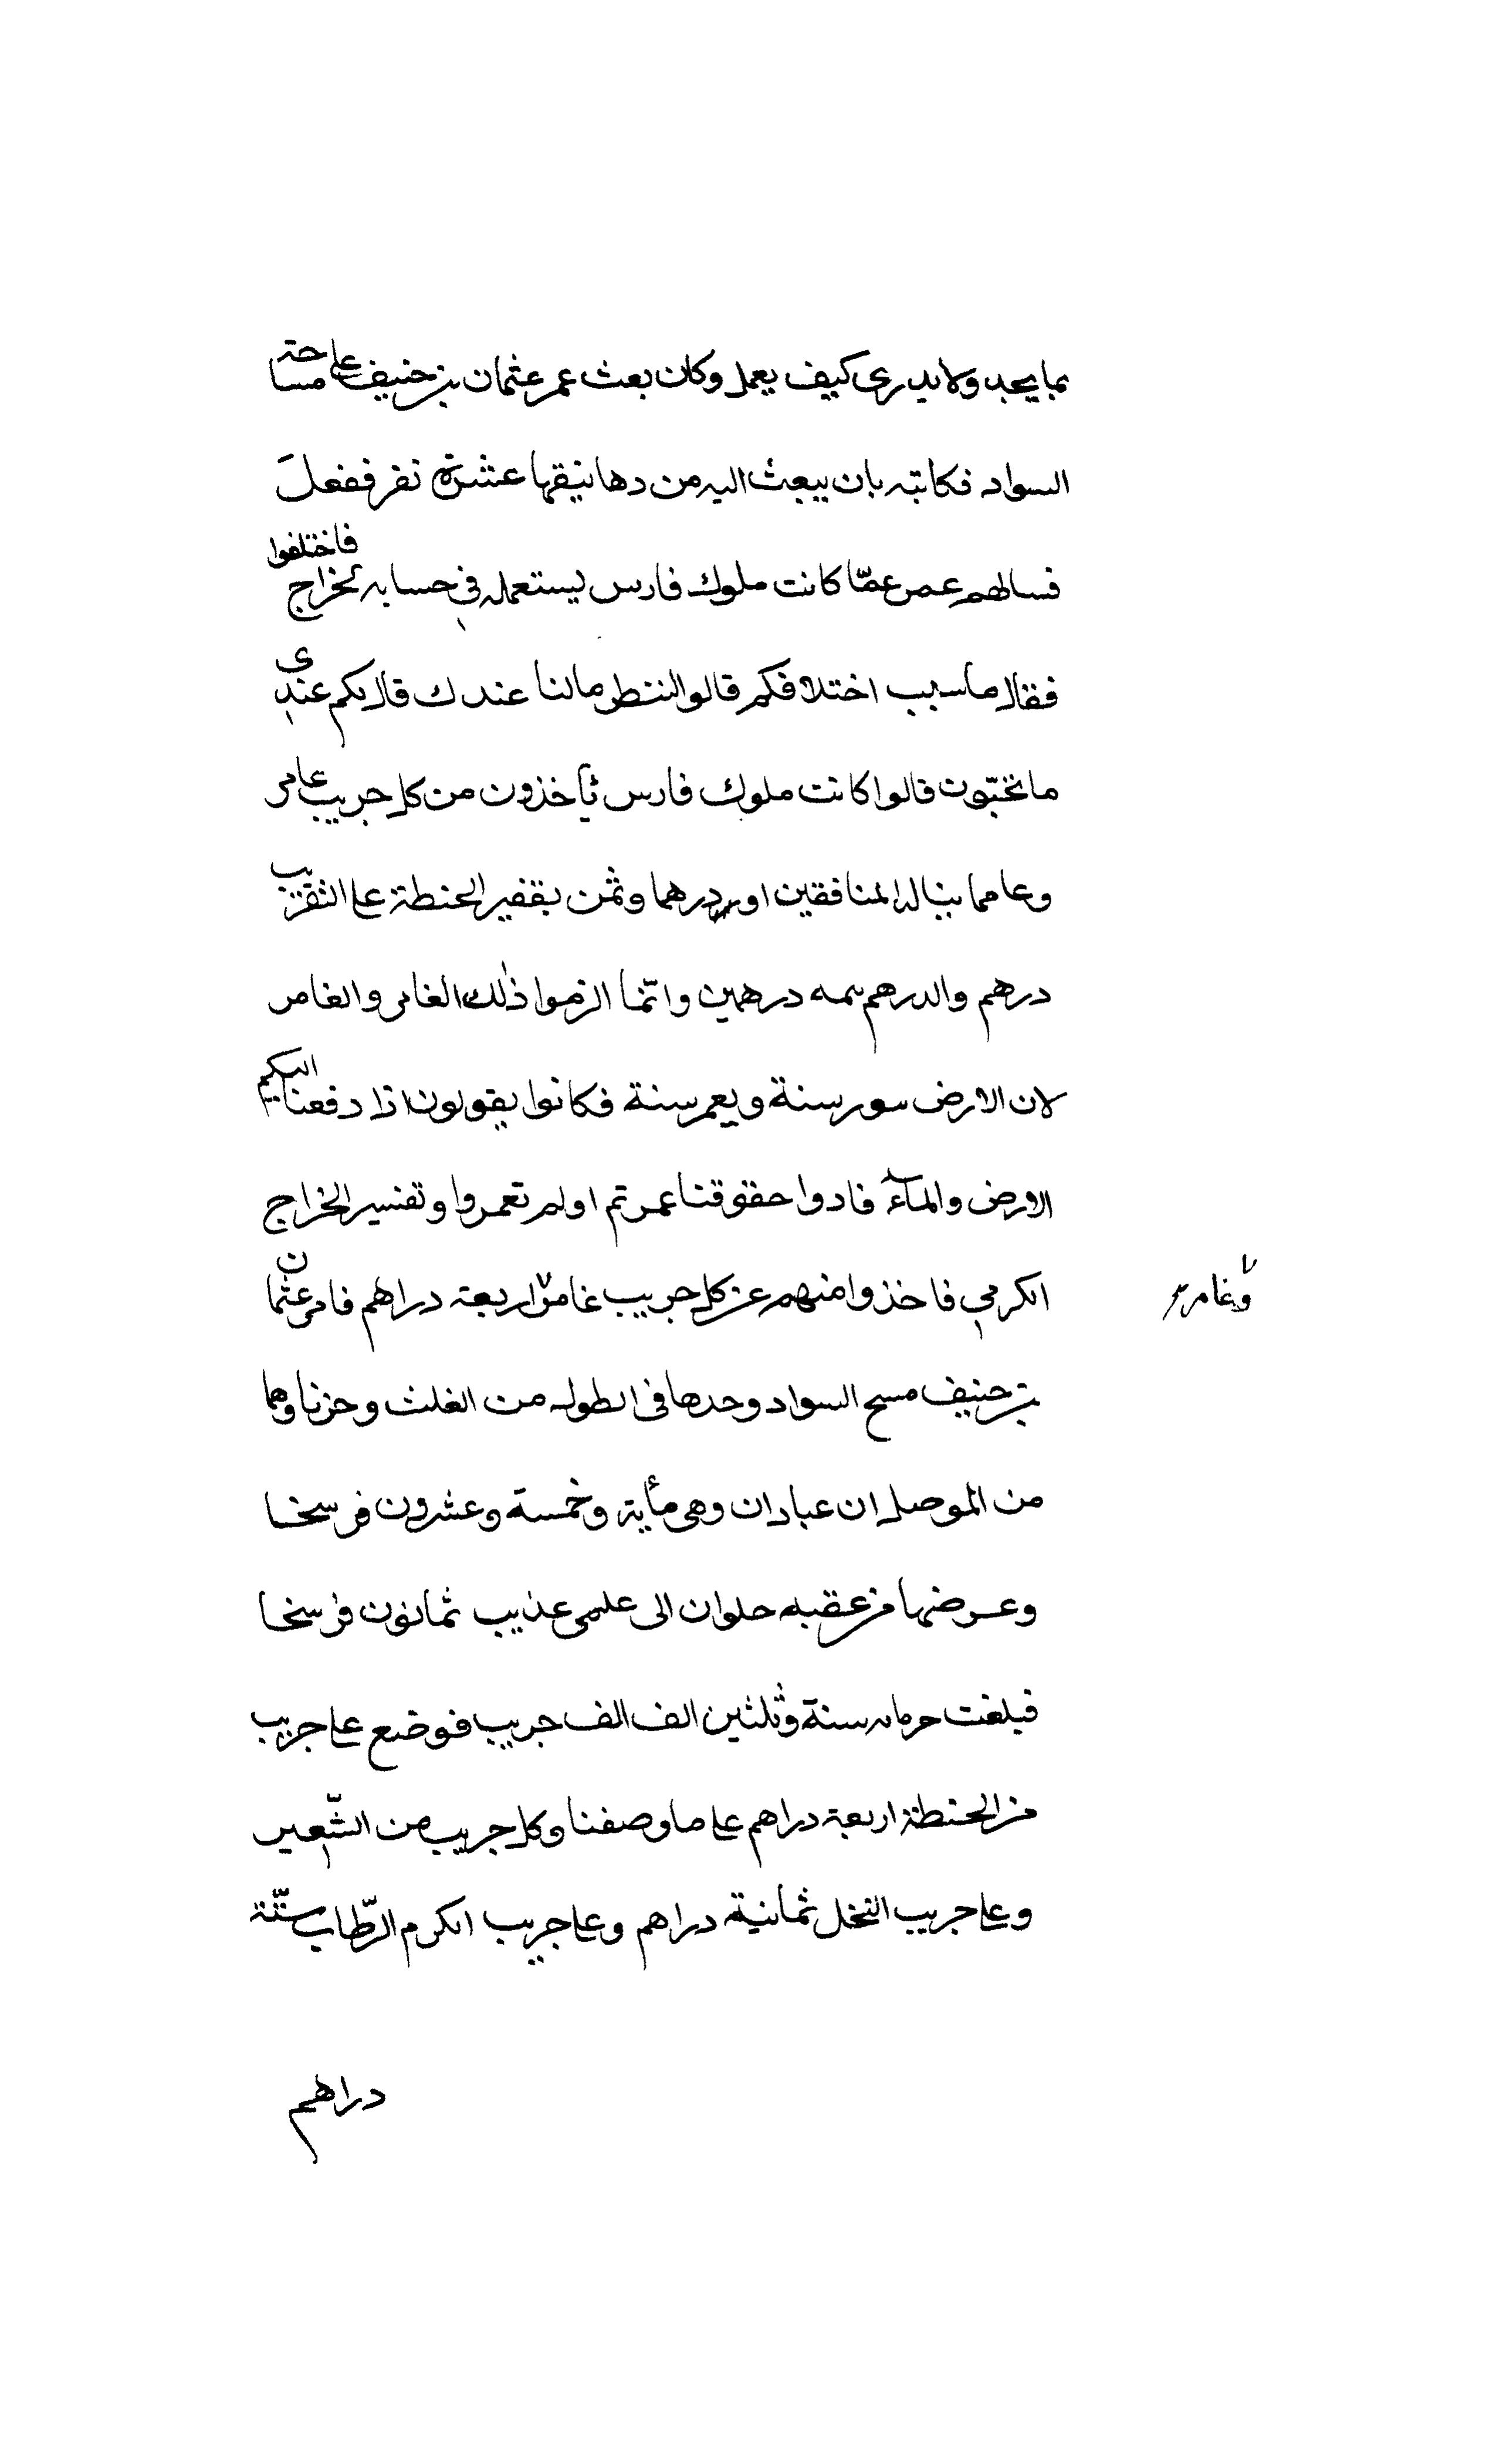 بما يجد ولا يدرى كيف يعمل وكان بعث عمر عثمان بن حنيف على مساحة
السواد فكاتبه بان يبعث اليه من دهانيقها عشرة نفر ففعل
فسالهم عمر عمّا كانت ملوك فارس يستعمله في حسابه الخراج فاختلفوا
فقال ما سبب اختلافكم قالوا لننظر مالنا عندك قال لكم عندى
ما تحبّون قالوا كانت ملوك فارس يأخذون من كل جريب عامر
وغامر مما يناله المنافقين او درهما وثمن بقفيز الحنطة على التقريب
درهم والدرهم درهمين وانّما الزموا ذلك العامر والغامر
لان الارض سنة ويعمر سنة فكانوا يقولون اذا دفعنا اليكم
الارض والمآء فادوا حقوقنا عمرتم او لم تعمروا وتفسير الخراج
الكرمي فاخذوا منهم عن كل جريب غامر اربعة دراهم فامر عثمان
وغامر
بن حنيف مسح السواد وحدها في الطول من الغلث وحزنا وهما
من الموصل ان عبادان وهى مأية وخمسة وعشرون فرسخا
وعرضها من عقبه حلوان الى علمى عذيب ثمانون فرسخا
فبلغت سنة وثلثين الف الف جريب فوضع على جريب
من الحنطة اربعة دراهم على ما وصفنا وكل جريب من الشّعير
وعلى جريب النخل ثمانية دراهم وعلى جريب الكرم الرّطاب ستّة
دراهم